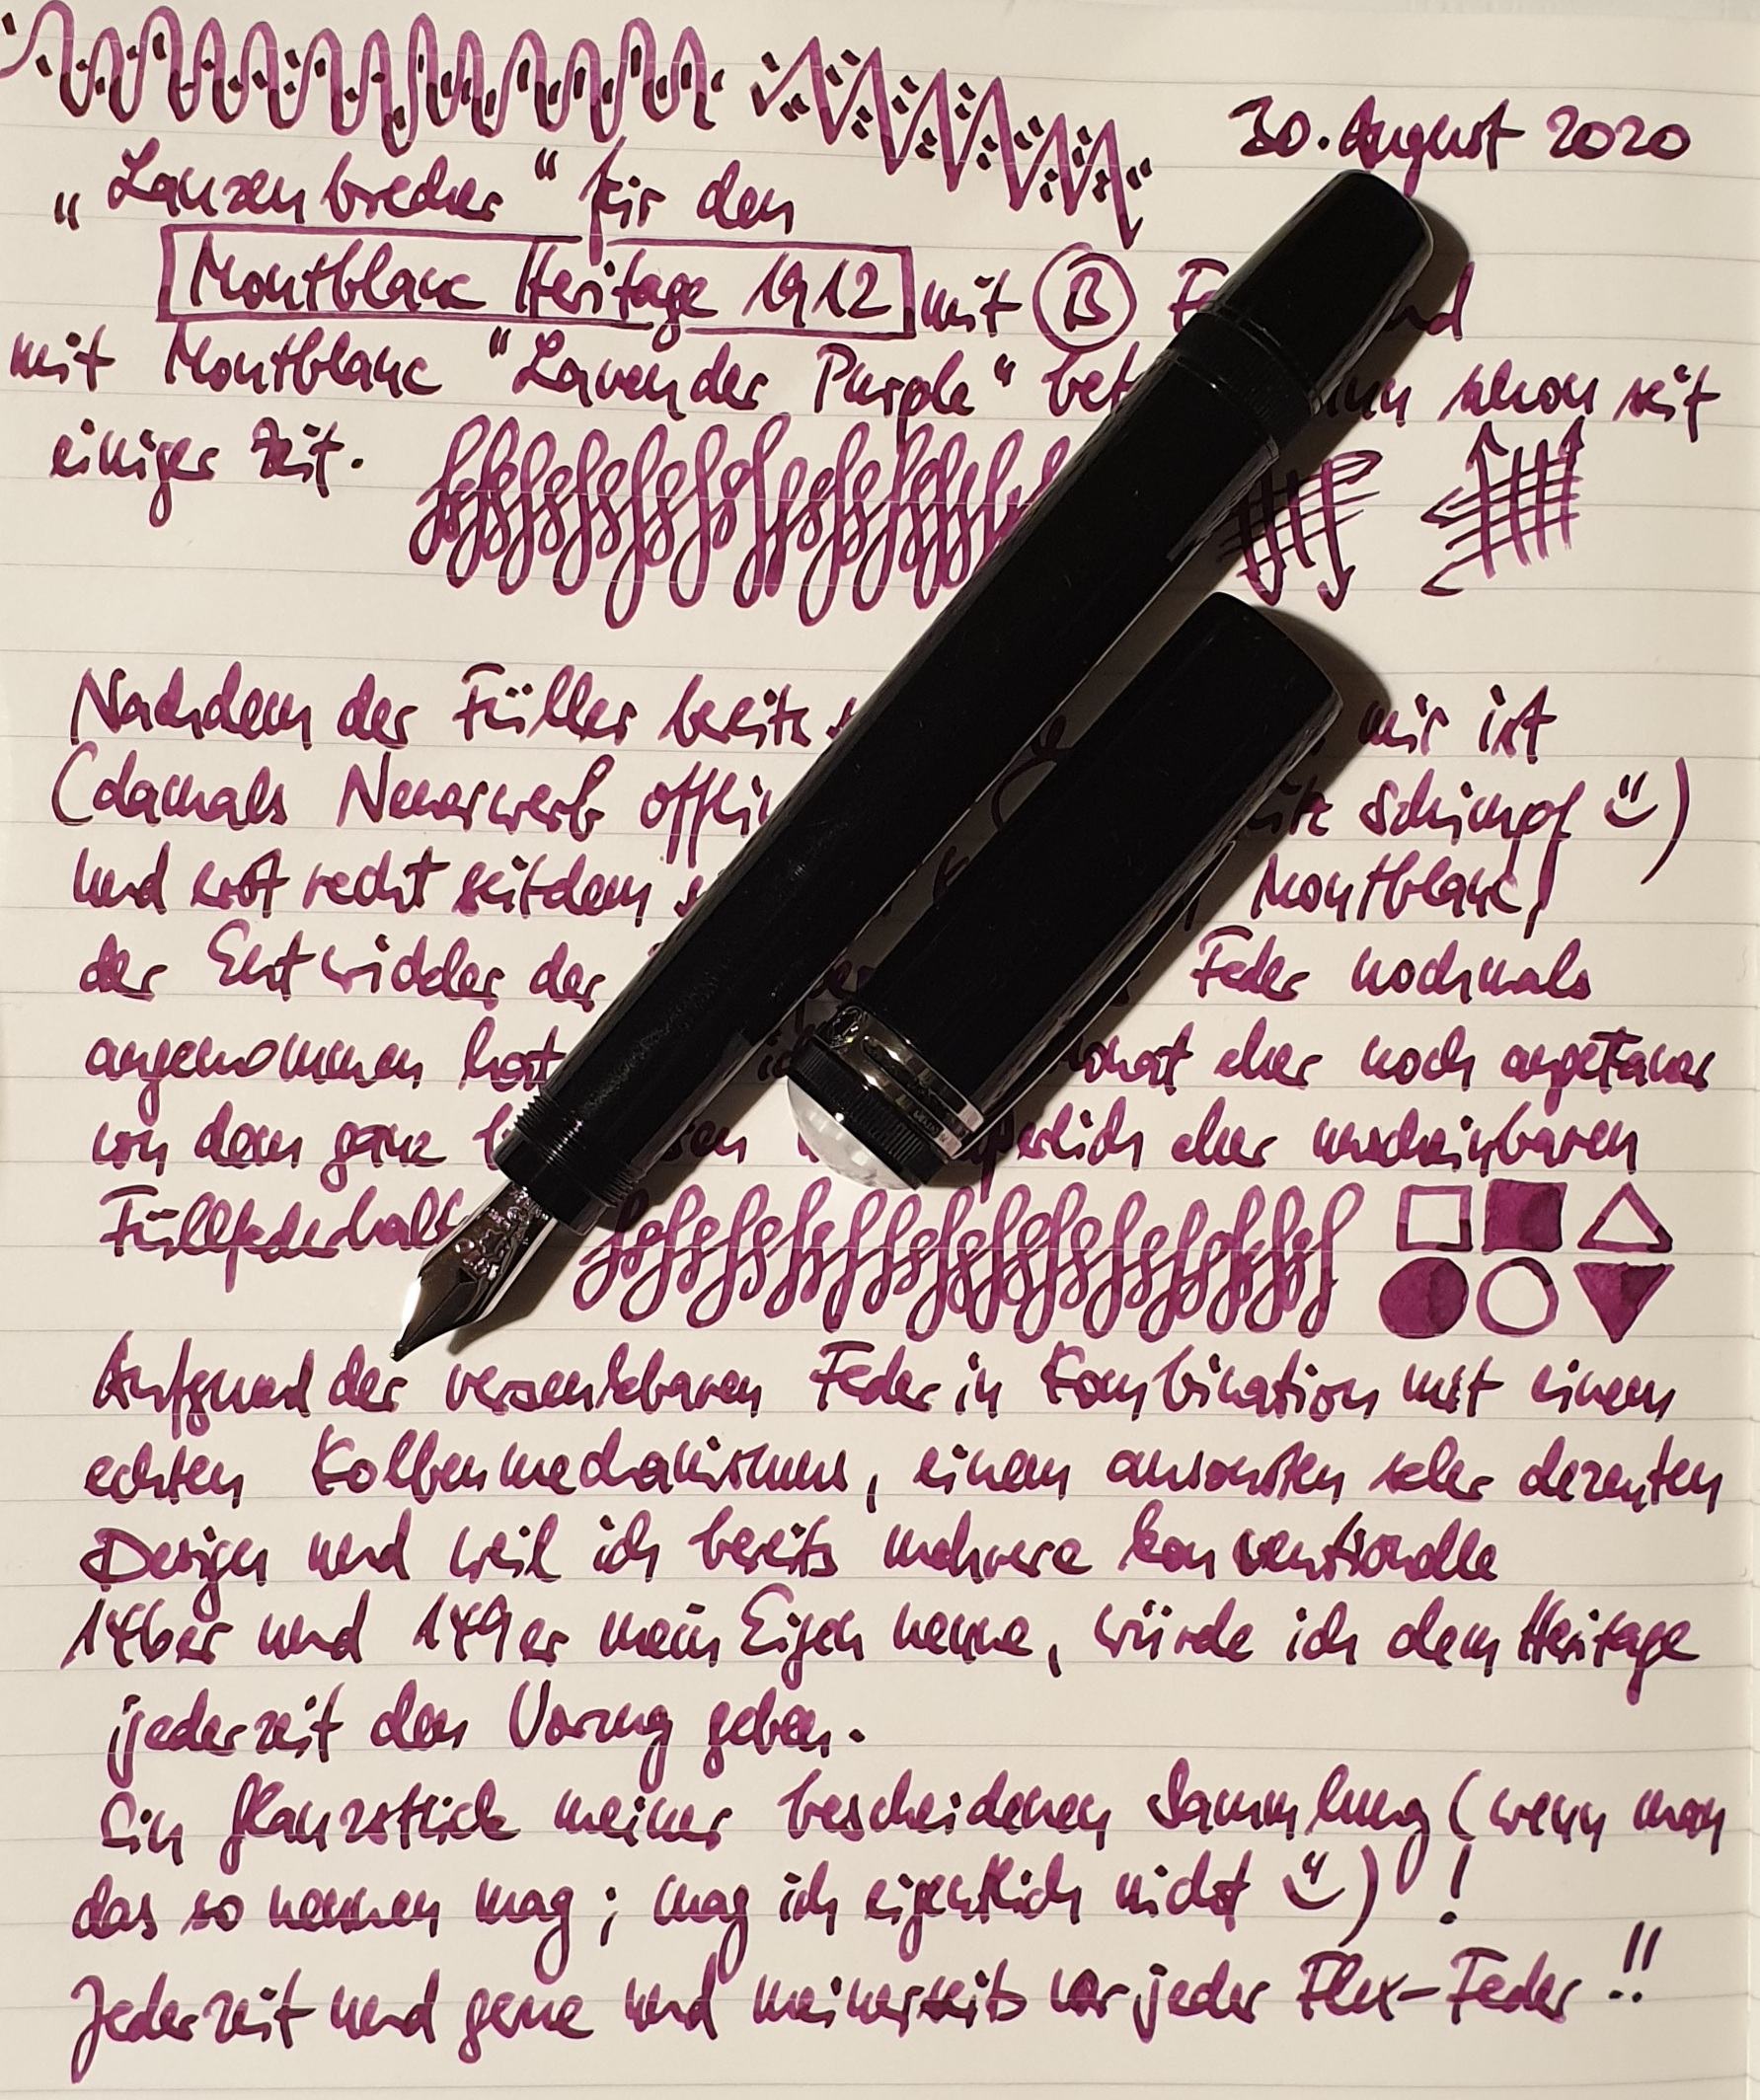 30. August 2020
„Lanzenbrecher“ für den
Montblanc Heritage 1912 mit B
mit Montblanc "Lavender Purple" schon seit
einiger Zeit.
Nachdem der Füller bereits mir ist
(damals Neuerwerb Schimpf
und erst recht seitdem Montblanc,
der Entwickler der Feder nochmals
angenommen hat eher noch angetaner
von dem ganz eher unscheinbaren
Aufgrund der versenkbaren Feder in Kombination mit einem
echten Kolbenmechanismus, einem ansonsten sehr dezenten
Design und weil ich bereits mehrere konventionelle
146er und 149er mein Eigen nenne, würde ich dem Heritage
jederzeit den Vorzug geben.
Ein Glanzstück meiner bescheidenen Sammlung (wenn man
das so nennen mag; mag ich eigentlich nicht )!
Jederzeit und gerne und meinerseits vor jeder Flex-Feder!!